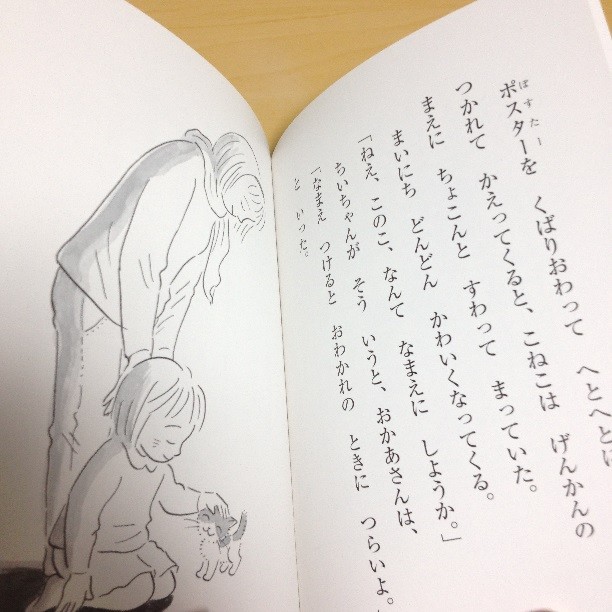 ポスターを くばりおわって へとへとに
ぱすたー
つかれて かえってくると、こねこは げんかんの
まえに ちょこんと すわって まっていた。
まいにち どんどん かわいくなってくる。
「ねえ、このこ、なんて なまえに しようか。」
ちいちゃんが そう いうと、おかあさんは、
「なまえ つけると おわかれの ときに つらいよ。」
と いった。